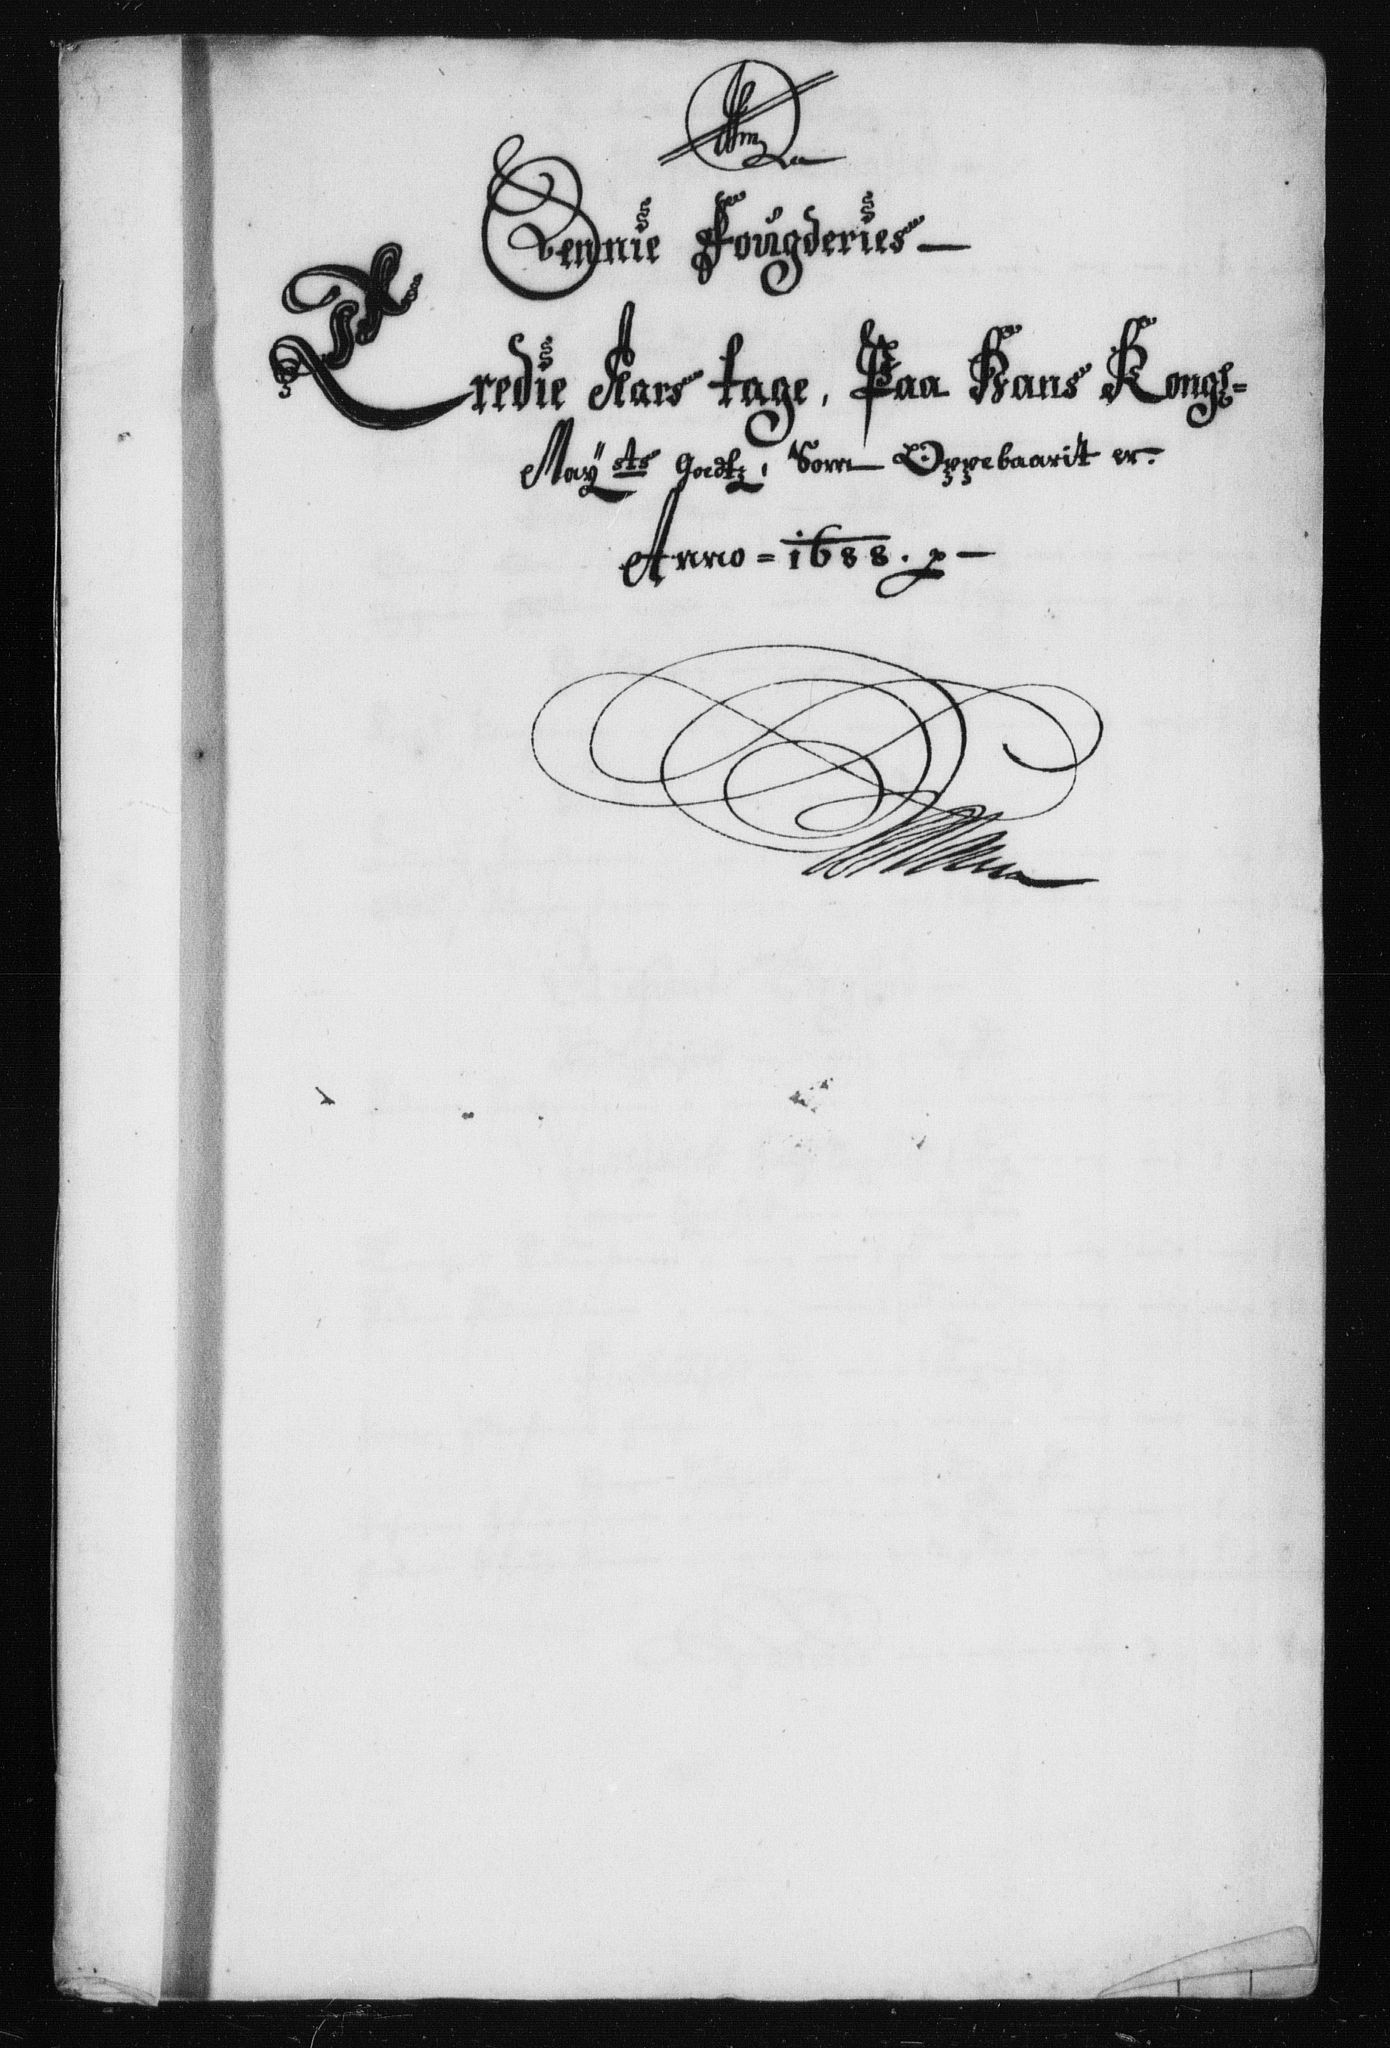 Sennie Fougderies
Tredie Aars tage, Paa Hans Kongl=
May sts Goedtz, Som Oppebaarit er.
Anno = 1688.